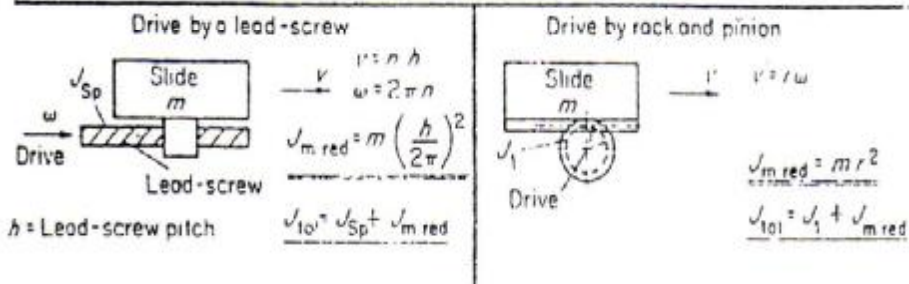 Drive by a lead-screw
Slide
m
J_Sp
ω
Drive
Lead-screw
h = Lead-screw pitch
v
v = n h
ω = 2πn
J_m red = m (h/2π)²
J_tot = J_Sp + J_m red
Drive by rack and pinion
Slide
m
r
J_1
Drive
v
v = rω
J_m red = m r²
J_tot = J_1 + J_m red